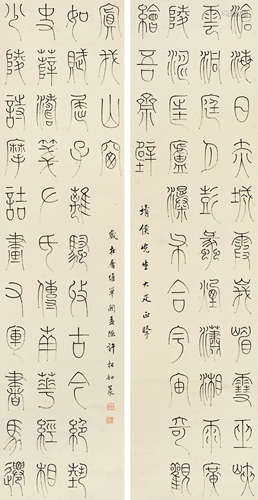 滄海日赤城霞峨嵋雪巫峽
雲洞庭月彭蠡煙瀟湘雨廣
陵濤匡廬瀑布合宇宙奇觀
繪吾齋壁
靖侯先生大疋正
少陵詩摩詰畫右軍書馬遷
史薛濤箋左氏傳南華經相
如賦屈子離騷收古今絕藝
寘我山窗
歲在屠維單閼孟陬許